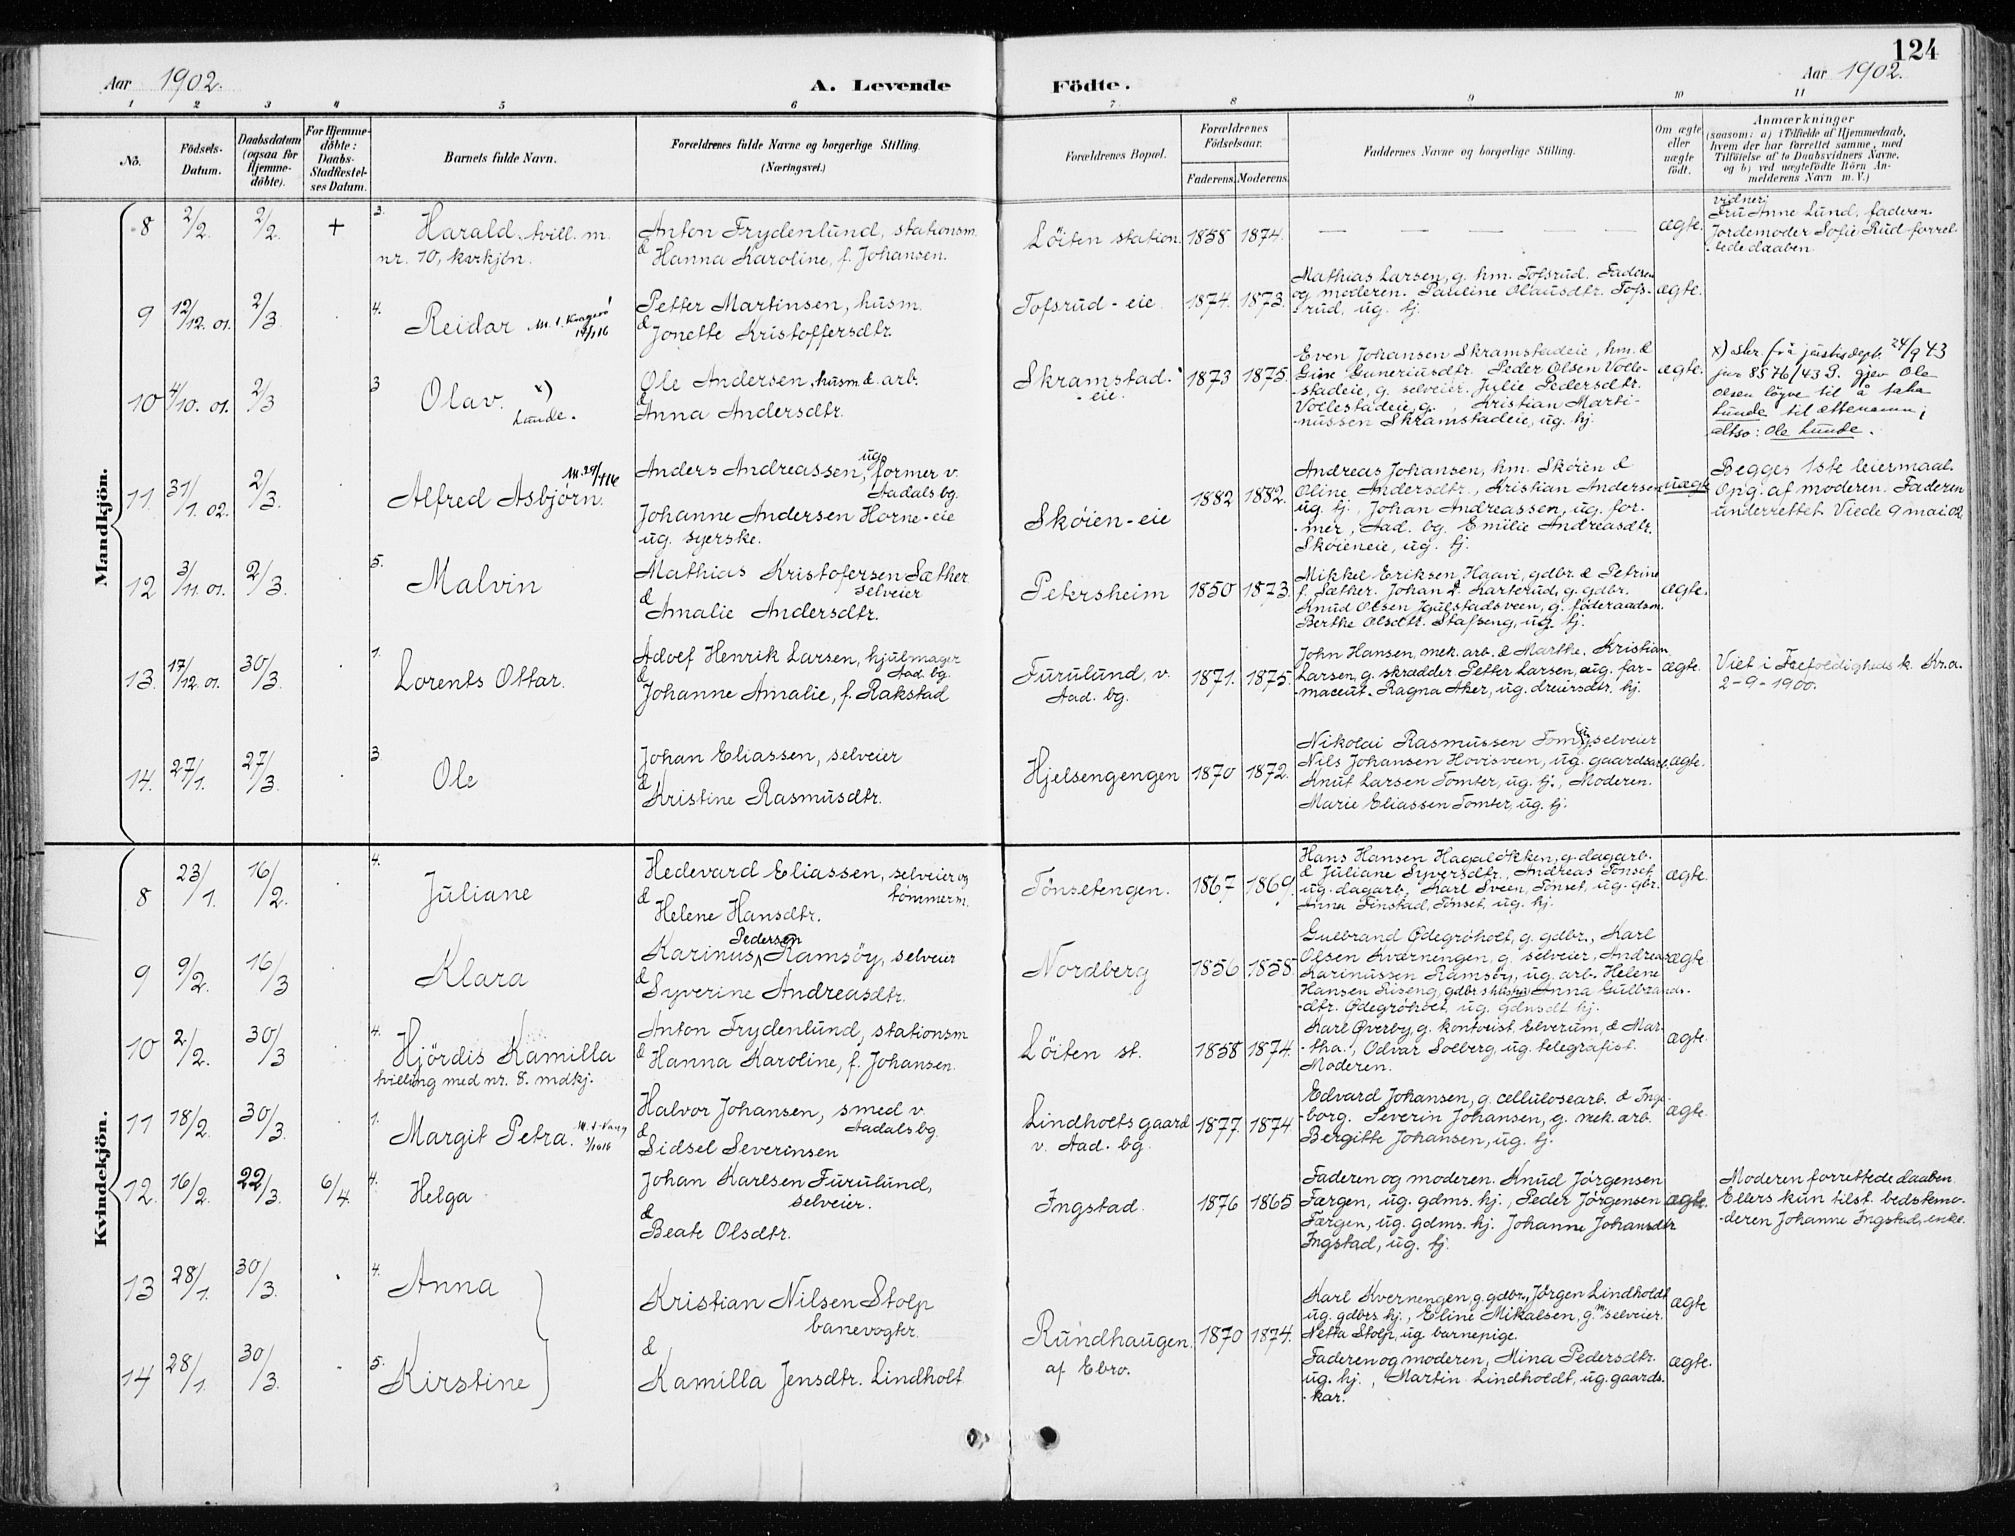 124
Aar 1902.
A. Levende Födte.
Aar 1902.
1 2 3 4 5 6 7 8 9 10 11
No.
Födsels-
Datum.
Daabsdatum
(ogsaa for
Hjemme-
döbte).
For Hjemme-
döbte:
Daabs-
Stadfestel-
ses Datum.
Barnets fulde Navn.
Forældrenes fulde Navne og borgerlige Stilling.
(Næringsvei.)
Forældrenes Bopæl.
Forældrenes
Födselsaar.
Faderens. Moderens.
Faddernes Navne og borgerlige Stilling.
Om ægte
eller
uægte
födt.
Anmærkninger
(saasom: a) i Tilfælde af Hjemmedaab,
hvem der har forrettet samme, med
Tilföielse af to Daabsvidners Navne.
og b) ved uægtefödte Börn An-
melderens Navn m. V.)
Mandkjön.
8 2/2. 2/2. + 3. Harald, tvill. m.
nr. 10, kvkjön.
Anton Frydenlund, stationsm.
& Hanna Karoline, f. Johansen.
Löiten station. 1858 1874. — — — — — ægte.
vidner:
Fru Anne Lund, faderen.
Jordemoder Sofie Rud forret-
tede daaben.
9 12/12. 01. 2/3. 4. Reidar
Petter Martinsen, husm.
& Jonette Kristoffersdtr.
Tofsrud-eie. 1874. 1873.
Mathias Larsen, g. hm. Tofsrud. Faderen
og moderen. Pauline Olausdtr. Tofs-
rud, ug. tj.
ægte.
10 4/10. 01. 2/3 3 Olav. x)
Lunde.
Ole Andersen, husm. & arb.
& Anna Andersdtr.
Skramstad-
-eie. 1873 1875.
Even Johansen Skramstadeie, hm. &
Gine Guneriusdtr. Peder Olsen Volle-
-stadeie, g. selveier. Julie Pedersdtr.
Vollestadeie, g., Kristian Marti-
-nussen Skramstadeie, ug. hj.
ægte.
x) skr. frå justisdept. 24/9 43
jnr 8576/43 P. gjev Ole
Olsen löyve til å taka
Lunde til ættenamn;
altso: Ole Lunde.
11 31/1. 02. 2/3. Alfred Asbjørn.
Anders Andreassen, ug. former v.
Aadals bg.
Johanne Andersen Horne-eie
ug. syerske.
Sköien-eie 1882 1882.
Andreas Johansen, hm. Sköien &
Oline Andersdtr., Kristian Andersen
ug. tj., Johan Andreassen, ug. for-
-mer, Aad. bg. Emilie Andreasdtr.
Sköieneie, ug. tj.
uægte
Begges 1ste leiermaal.
Opg. af moderen. Faderen
underrettet. Viede 9 mai 02
12 3/11. 01. 2/3. 5. Malvin
Mathias Kristofersen Sæther
selveier
& Amalie Andersdtr.
Petersheim 1850 1873.
Mikkel Eriksen Haavi, gdbr. & Petrine
f. Sæther. Johan L. Karterud, g. gdbr.
Knud Olsen Hjulstadsveen, g. föderaadsm.
Berthe Olsdtr. Stafseng, ug. tj.
ægte.
13. 17/12. 01. 30/3. 1. Lorents Ottar.
Adolf Henrik Larsen, hjulmager
Aad. bg.
& Johanne Amalie, f. Rakstad
Furulund, v.
Aad. bg. 1871. 1875.
John Hansen, mek. arb. & Marthe, Kristian
Larsen, g. skrædder. Petter Larsen, ug. far-
-maceut. Ragna Aker, ug. dreiersdtr. hj.
ægte.
Viet i Trefoldigheds k. Kr.a.
2-9-1900.
14. 27/1. 27/3. 3. Ole
Johan Eliassen, selveier
& Kristine Rasmusdtr.
Hjelsengengen 1870 1872.
Nikolai Rasmussen Tomter, selveier
Nils Johansen Hovisveen, ug. gaardsarb.
Knut Larsen Tomter, ug. tj., Moderen.
Marie Eliassen Tomter, ug. tj.
ægte.
Kvindekjön.
8 23/1. 16/2. 4. Juliane
Hedevard Eliassen, selveier og
tömmerm.
& Helene Hansdtr.
Tönsetengen. 1867 1869.
Hans Hansen Hagalökken, g. dagarb.
& Juliane Syversdtr., Andreas Tönset
ug. dagarb., Karl Sveen, Tönset, ug. gbr.
Anna Finstad, Tönset, ug. hj.
ægte.
9 9/2. 16/3 Klara
Karinus Pedersen Ramsöy, selveier
& Syverine Andreasdtr.
Nordberg 1856 1858.
Gulbrand Ödegröholt, g. gdbr., Karl
Olsen Kværnengen, g. selveier, Andreas
Karinussen Ramsöy, ug. arb. Helene
Hansen Riseng, gdbrs hustru. Anna Gulbrands-
-dtr. Ödegröholt, ug. gdmsdt hj.
ægte.
10 2/2. 30/3 4. Hjördis Kamilla
tvilling med nr. 8. mdkj.
Anton Frydenlund, stationsm
& Hanna Karoline, f. Johansen.
Löiten st. 1858 1874.
Karl Överby, g. kontorist. Elverum, & Mar-
-tha., Odvar Solberg, ug. telegrafist.
Moderen.
ægte.
11 18/2. 30/3. 1. Margit Petra.
Halvor Johansen, smed v.
Aadals bg.
& Sidsel Severinsen
Lindholts gaard
v. Aad. bg. 1877. 1874.
Edvard Johansen, g. cellulosearb. & Inge-
-borg. Severin Johansen, g. mek. arb.
Bergitte Johansen, ug. tj.
ægte.
12. 16/2. 22/3. 6/4 4. Helga
Johan Karlsen Furulund,
selveier.
& Beate Olsdtr.
Ingstad. 1876 1865
Faderen og moderen. Knud Jörgensen
Færgen, ug. gdms. hj., Peder Jörgensen
Færgen, ug. gdms. hj. Johanne Johansdtr
Ingstad, ug. tj.
ægte.
Moderen forrettede daaben.
Ellers kun tilst. bedstemo-
-deren Johanne Ingstad, enke.
13 28/1. 30/3. 4. Anna
Kristian Nilsen Stolp
banevogter.
&
Rundhaugen
af Ebro. 1870 1874.
Karl Kvernengen, g. gdbr., Jörgen Lindholdt
ug. gdbrs hj., Eline Mikalsen, g. m. selveier.
Netta Stolp, ug. barnepige.
ægte
14 28/1. 30/3. 5. Kirstine
Kamilla Jensdtr. Lindholt
Faderen og moderen, Mina Pedersdtr.
ug. hj., Martin Lindholdt, ug. gaards-
-kar.
ægte.